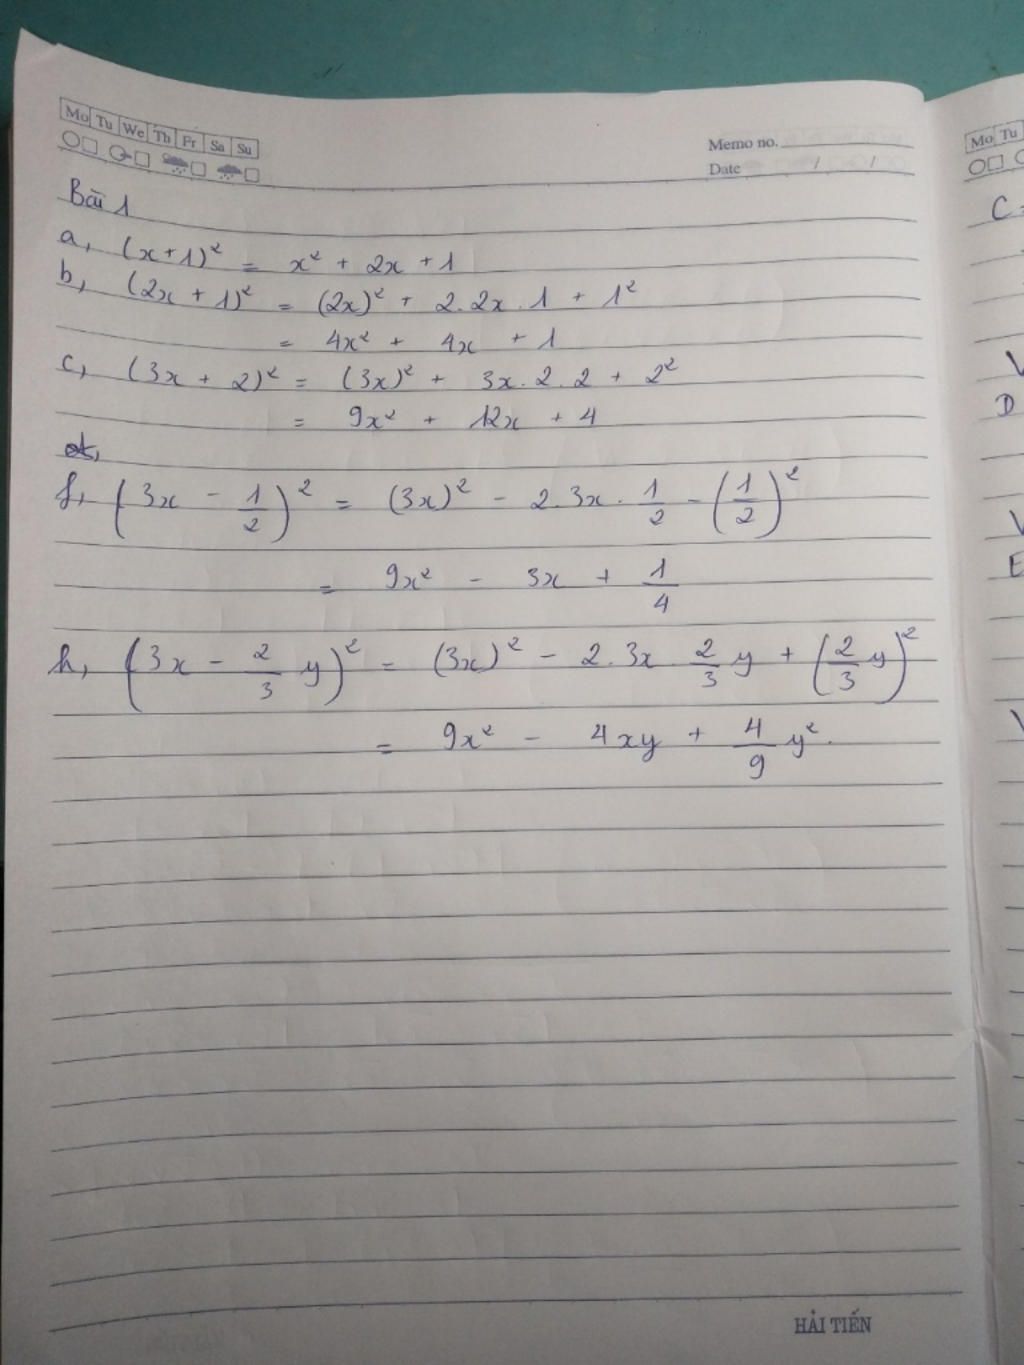 Mo Tu We Th Fr Sa Su
Memo no.
Date / /
Bài 1
a, (x+1)² = x² + 2x + 1
b, (2x + 1)² = (2x)² + 2.2x.1 + 1²
= 4x² + 4x + 1
c, (3x + 2)² = (3x)² + 3x.2.2 + 2²
= 9x² + 12x + 4
f, (3x - 1/2)² = (3x)² - 2.3x.1/2 - (1/2)²
= 9x² - 3x + 1/4
h, (3x - 2/3 y)² = (3x)² - 2.3x.2/3 y + (2/3 y)²
= 9x² - 4xy + 4/9 y².
HẢI TIẾN
Mo Tu
C
D
E